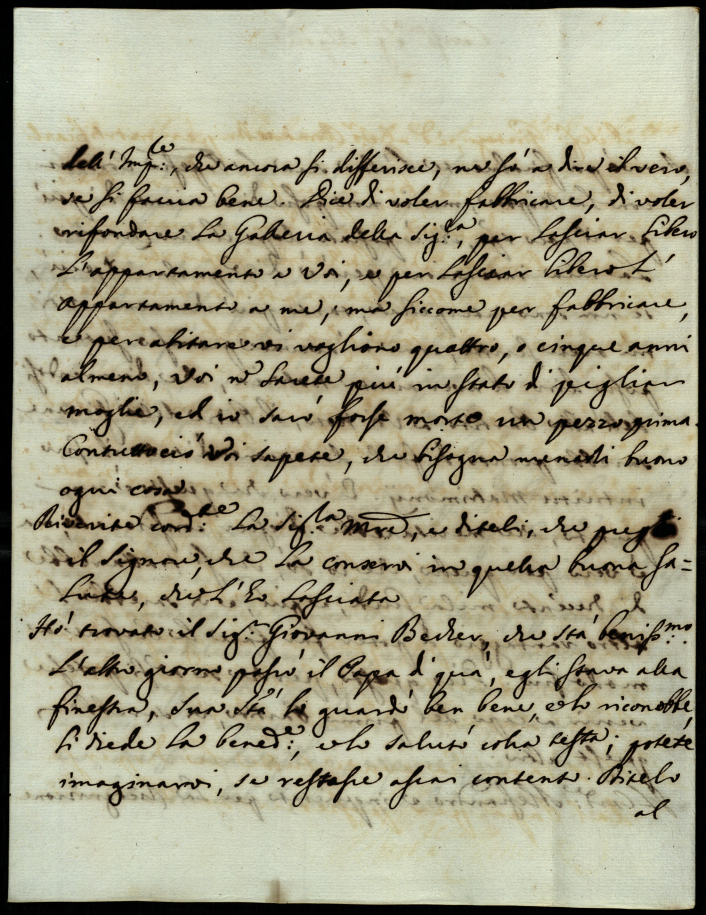 dell' Imp.le, che ancora si differisce, ne sò a dire il vero,
se si faccia bene. Dice di voler fabbricare, di voler
rifondare la Galleria della Sig.ra, per lasciar libero
L'appartamento a Voi, e per lasciar libero L'
appartamento a me, ma siccome per fabbricare,
e per abitare vi vogliono quattro, o cinque anni
almeno, Voi nò sarete più in stato di pigliar
moglie, ed io sarò forse morto un pezzo prima.
Contuttociò Voi sapete, che bisogna menar buono
ogni cosa
Riverite cord.te La Sig.ra Mre, e diteli, che preghi
il Signore, che La conservi in quella buona sa=
lute, che L'hò lasciata
Hò trovato il Sig.r Giovanni Becker, che stà beniss.mo.
L'altro giorno passò il Papa di quà, egli stava alla
finestra, Sua S.tà lo guardò ben bene, e lo riconobbe,
li diede la bened.e, e lo salutò colla testa; potete
imaginarvi, se restasse assai contento. Ditelo
al